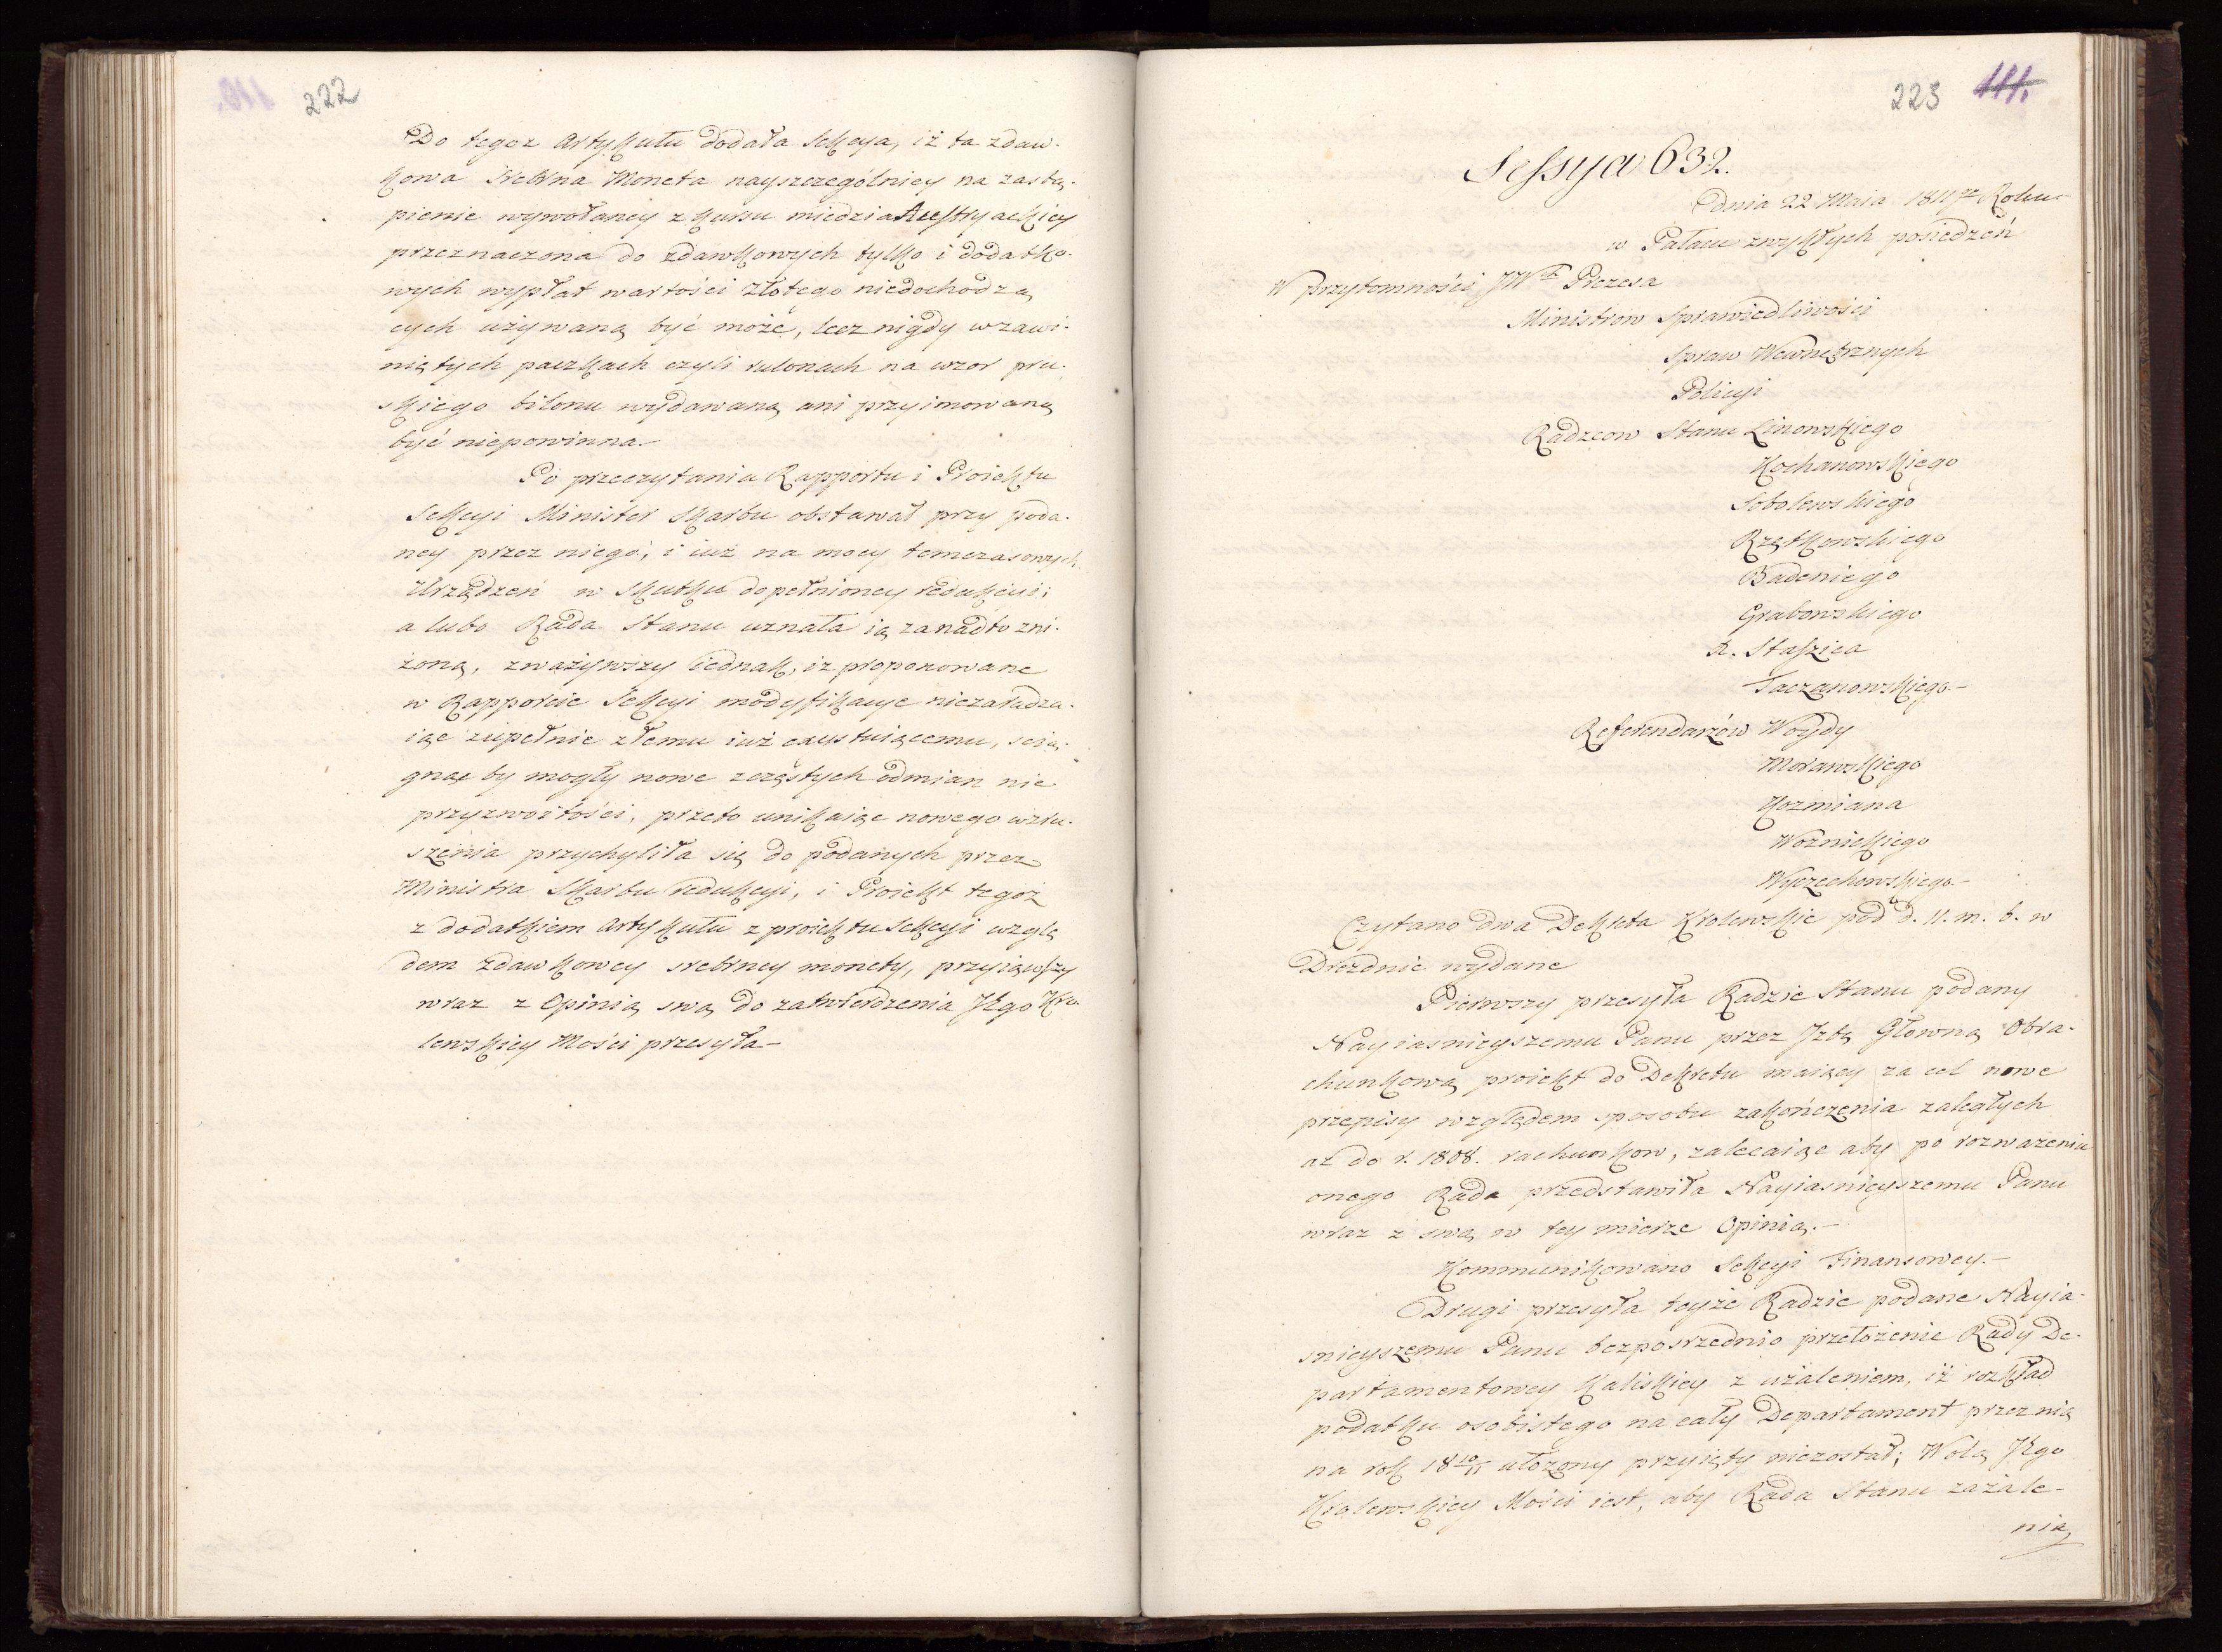 222
Do tegoz Artykułu dodała Sekcya, iż ta zdaw-
kowa srebrna Moneta nayszczególniey na zastą-
pienie wywołaney z kursu miedzi Austryackiey
przeznaczona do zdawkowych tylko i dodatko-
wych wypłat wartości złotego niedochodzą
cych używaną być może, lecz nigdy w zawi-
niętych paczkach czyli rulonach na wzor pru-
skiego bilonu wydawaną ani przyimowaną
być niepowinna.-
Po przeczytaniu Rapportu i Proiektu
Sekcyi Minister Skarbu obstawał przy poda-
ney przez niego, i iuż na mocy temczasowych
Urządzeń w skutku dopełnioney redukcyi;
a lubo Rada Stanu uznała ią zanadto zni-
żoną, zważywszy iednak, iz proponowane
w Rapporcie Sekcyi modyfikacye niezaradza-
iąc zupełnie złemu iuż exystuiącemu, ścią-
gnąć by mogły nowe z częstych odmian nie
przyzwoitości, przeto unikaiąc nowego wzru-
szenia przychyliła się do podanych przez
Ministra Skarbu redukcyi, i Proiekt tegoż
z dodatkiem Artykułu z proiektu Sekcyi wzglę
dem zdawkowey srebrney monety, przyiąwszy
wraz z Opinią swą do zatwierdzenia JKgo Kró-
lewskiey Mości przesyła-
223 111.
Sessya 632.
dnia 22 Maia 1811go Roku-
w Pałacu zwykłych posiedzeń
W przytomności JWch Prezesa
Ministrow Sprawiedliwości
Spraw Wewnętrznych
Policyi
Radzcow Stanu Linowskiego
Kochanowskiego
Sobolewskiego
Rzętkowskiego
Badeniego
Grabowskiego
R. Staszica
Taczanowskiego.-
Referendarzów Woydy
Morawskiego
Kozmiana
Woznickiego
Wyczechowskiego-
Czytano dwa Dekreta Krolewskie pod d. 11. m. b. w
Dreznie wydane
Pierwszy przesyła Radzie Stanu podany
Nayiasnieyszemu Panu przez Jzbę Główną Obra-
chunkową proiekt do Dekretu maiący za cel nowe
przepisy względem sposobu zakończenia zaległych
az do r. 1808. rachunkow, zalecaiąc aby po rozwazeniu
onego Rada przedstawiła Nayiasnieyszemu Panu
wraz z swą w tey mierze Opinią.-
Kommunikowano Sekcyi Finansowey.-
Drugi przesyła teyże Radzie podane Nayia-
snieyszemu Panu bezposrzednio przełożenie Rady De-
partamentowey Kaliskiey z użaleniem, iż rozkład
podatku osobistego na cały Departament przez nią
na rok 18 10/11 ułożony przyięty niezostał; Wolą JKgo
Krolewskiey Mości iest, aby Rada Stanu zażale-
nia,